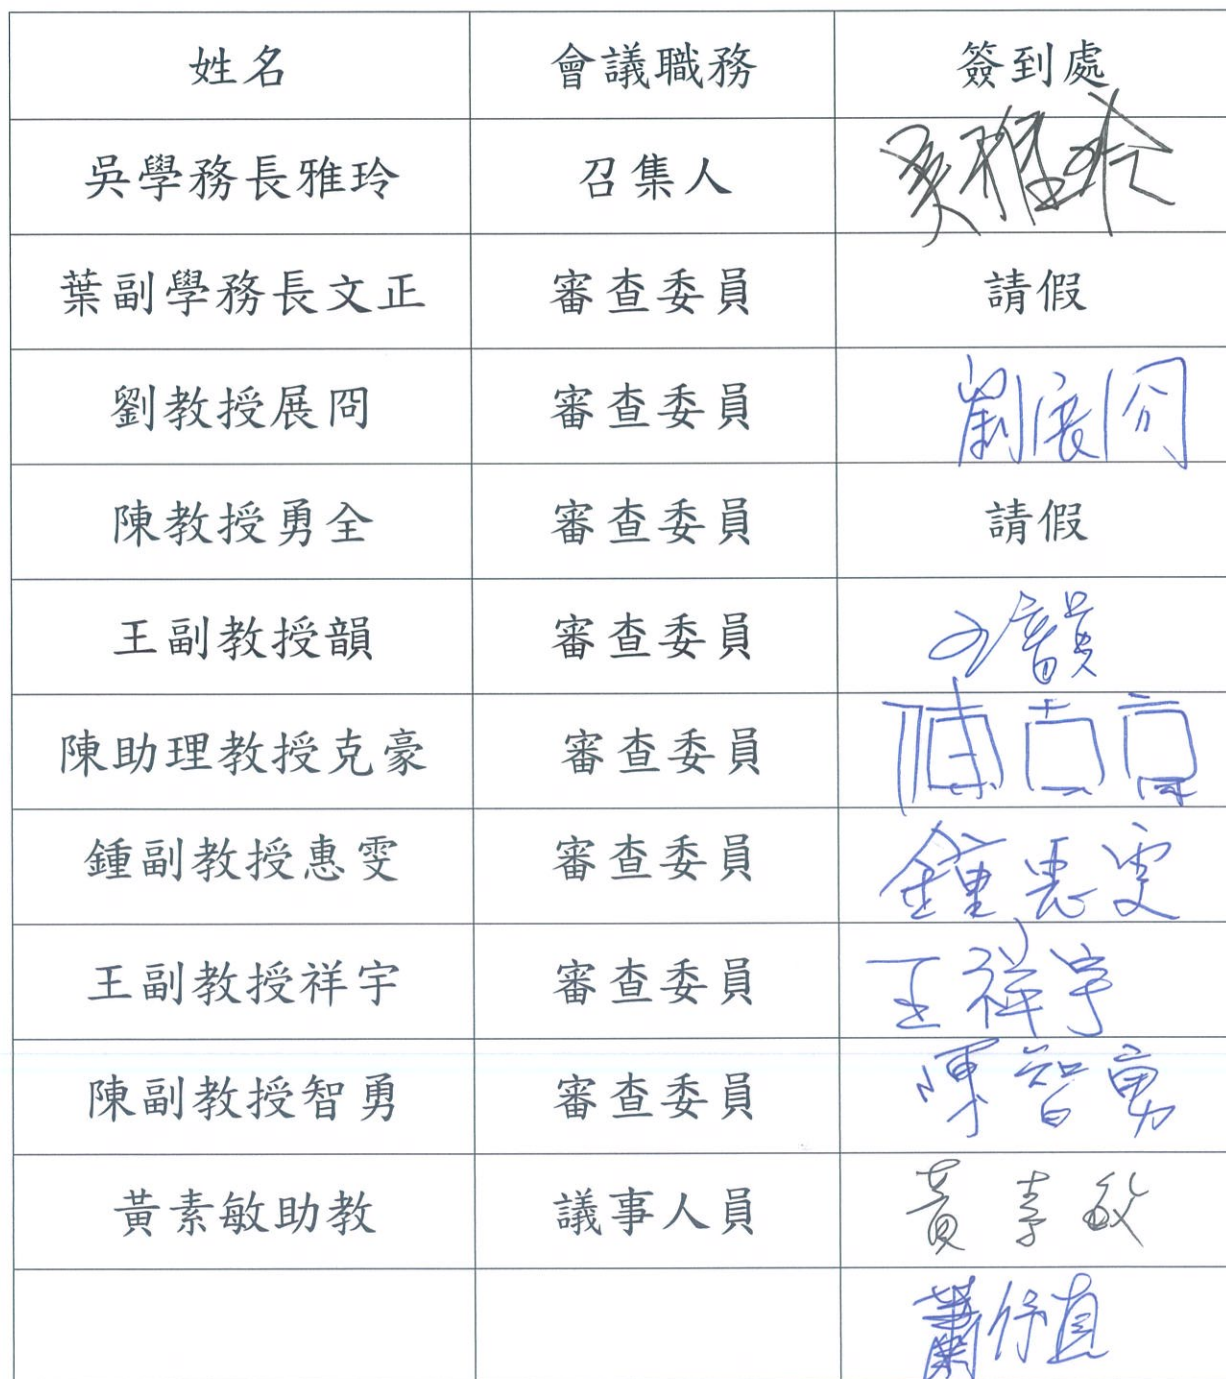 姓名 會議職務 簽到處
吳學務長雅玲 召集人 吳雅玲
葉副學務長文正 審查委員 請假
劉教授展冏 審查委員 劉展冏
陳教授勇全 審查委員 請假
王副教授韻 審查委員 王韻
陳助理教授克豪 審查委員
鍾副教授惠雯 審查委員 鍾惠雯
王副教授祥宇 審查委員 王祥宇
陳副教授智勇 審查委員 陳智勇
黃素敏助教 議事人員 黃素敏